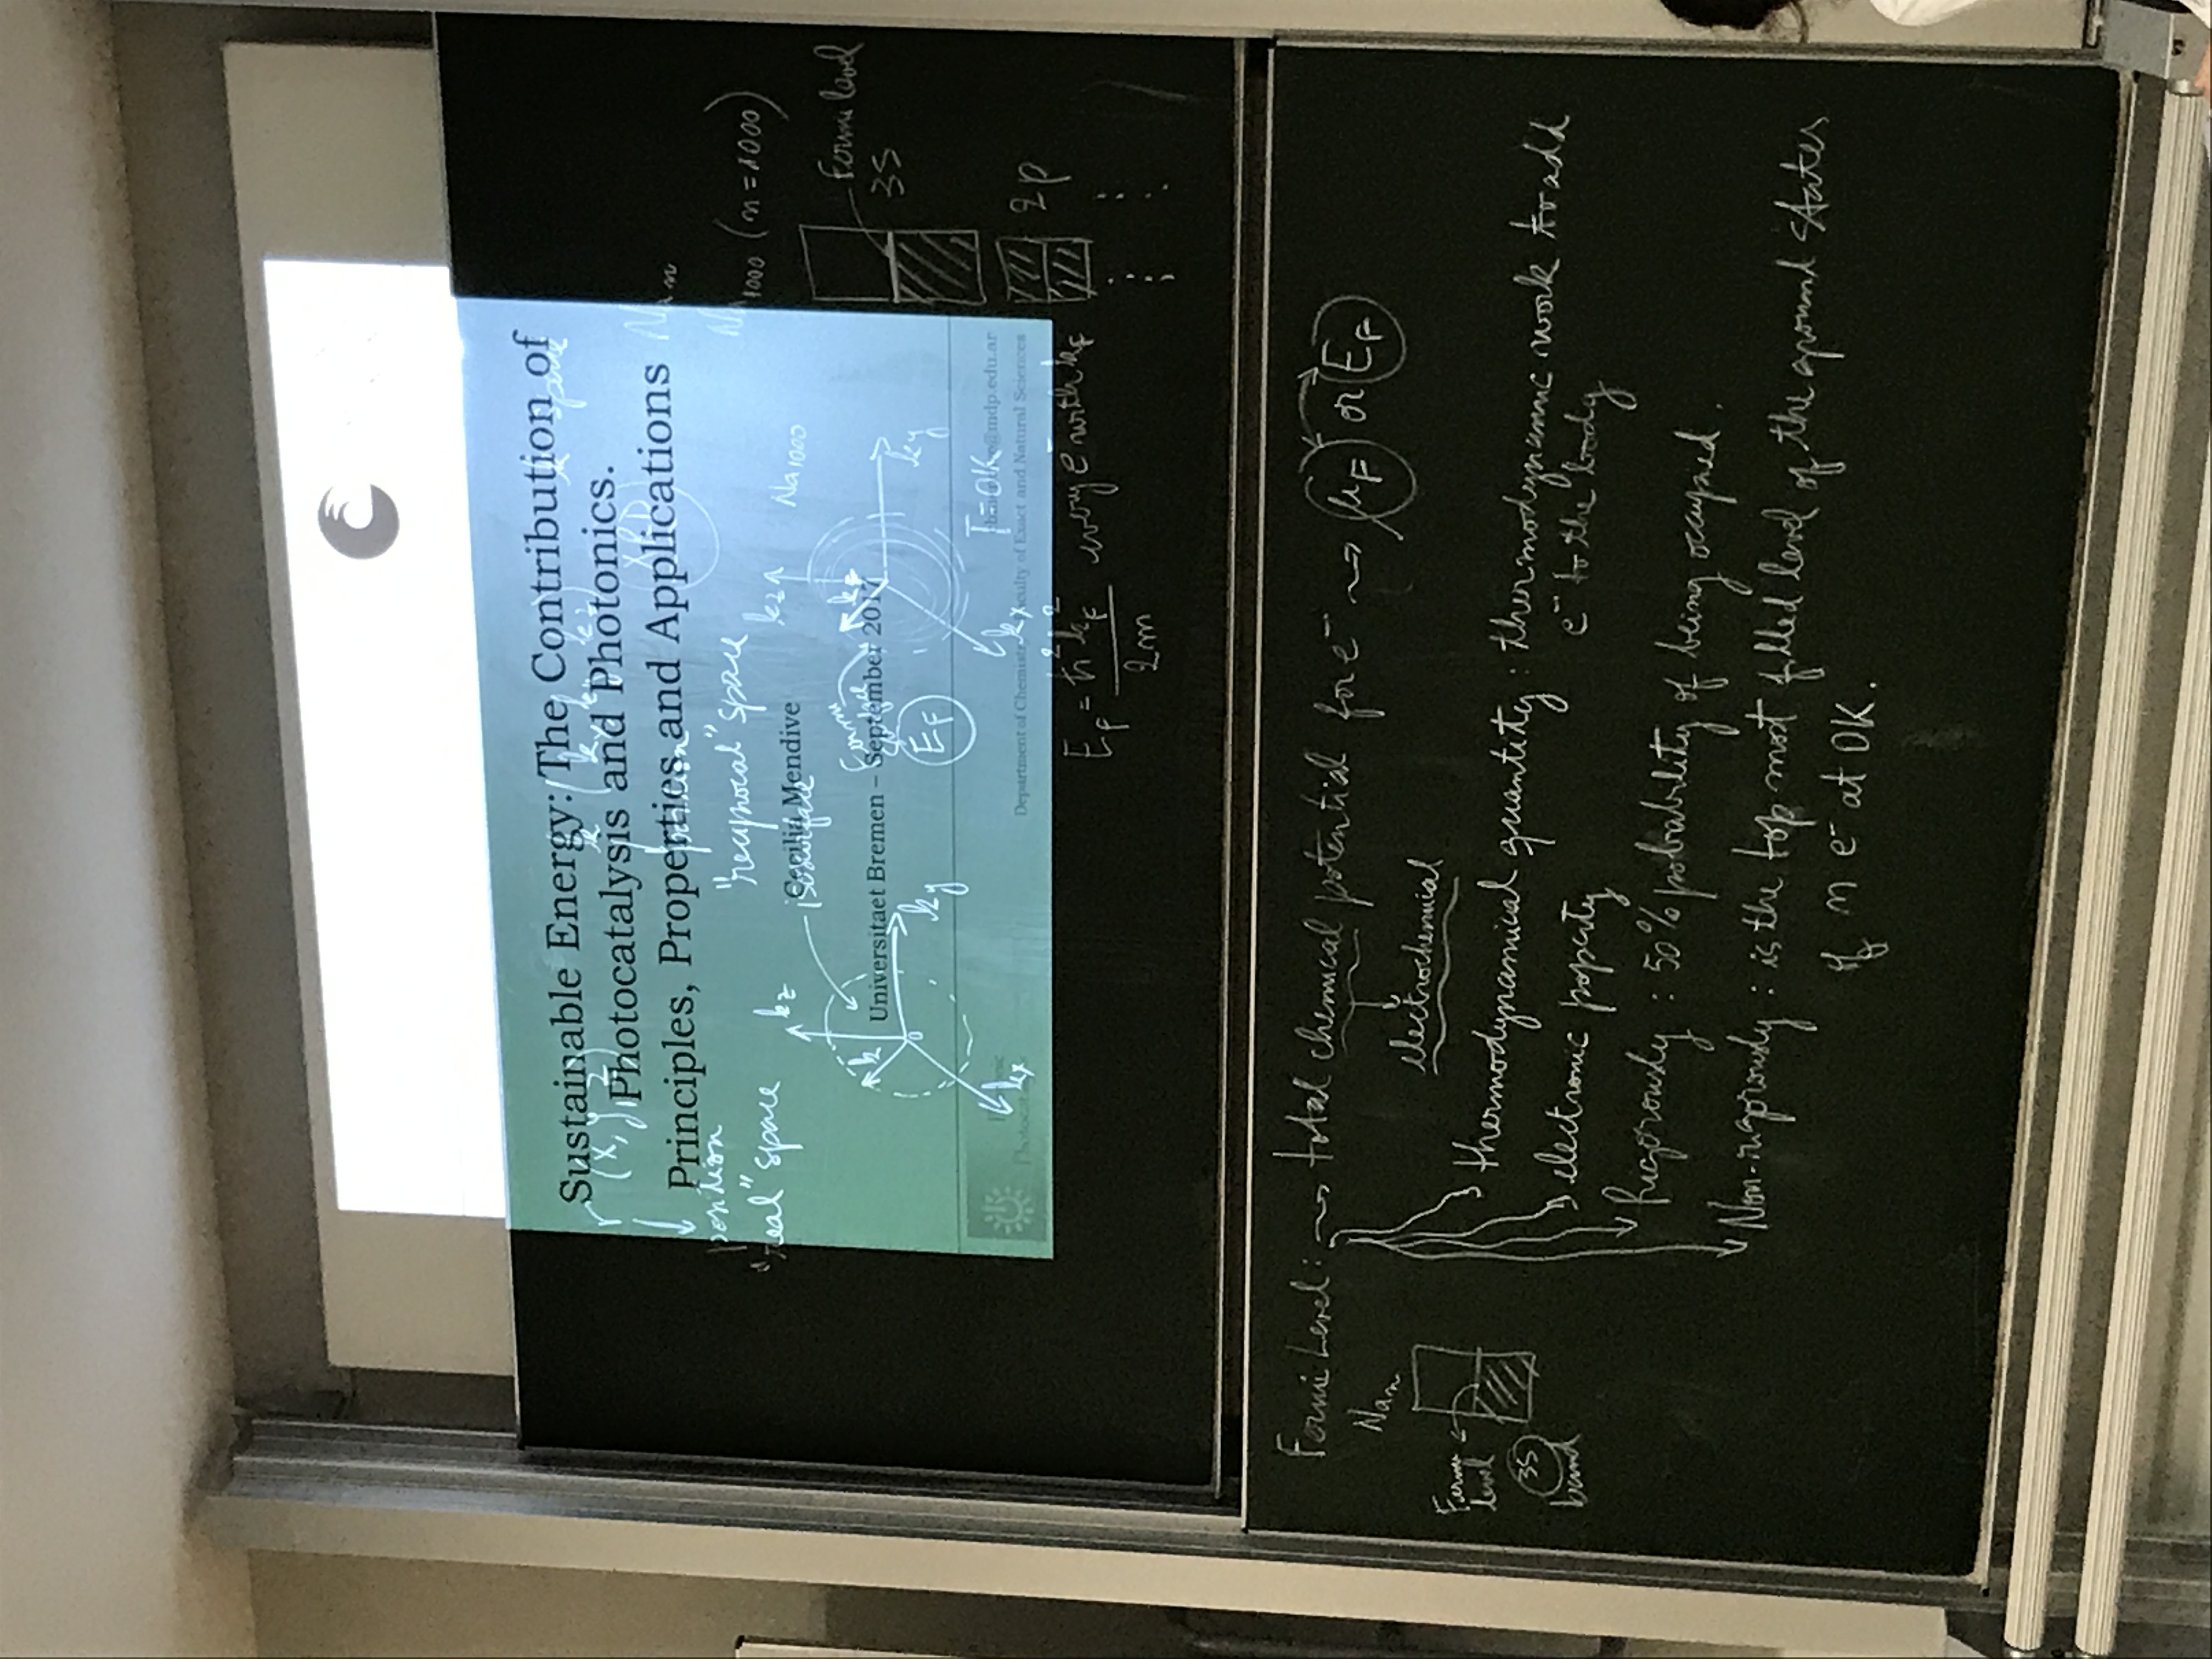 Sustainable Energy: The Contribution of
Photocatalysis and Photonics.
Principles, Properties and Applications
Cecilia Mendive
Universitaet Bremen – September 2017
@mdp.edu.ar
Department of Chemistry Faculty of Exact and Natural Sciences
(x, y, z)
"real" space
"reciprocal" space
isosurface
kz
k
ky
kx
kz
Na1000
kF
ky
kx
Fermi
EF
T=0K
1000 (n=1000)
Fermi level
3s
2p
EF = ħ² kF² / 2m
every e⁻ with kF
Fermi Level: → total chemical potential for e⁻ → μF or EF
electrochemical
Nan
Fermi level
3s
band
thermodynamical quantity: thermodynamic work to add
e⁻ to the body
electronic property
Rigorously: 50% probability of being occupied.
Non-rigorously: is the top most filled level of the ground states
of n e⁻ at 0K.